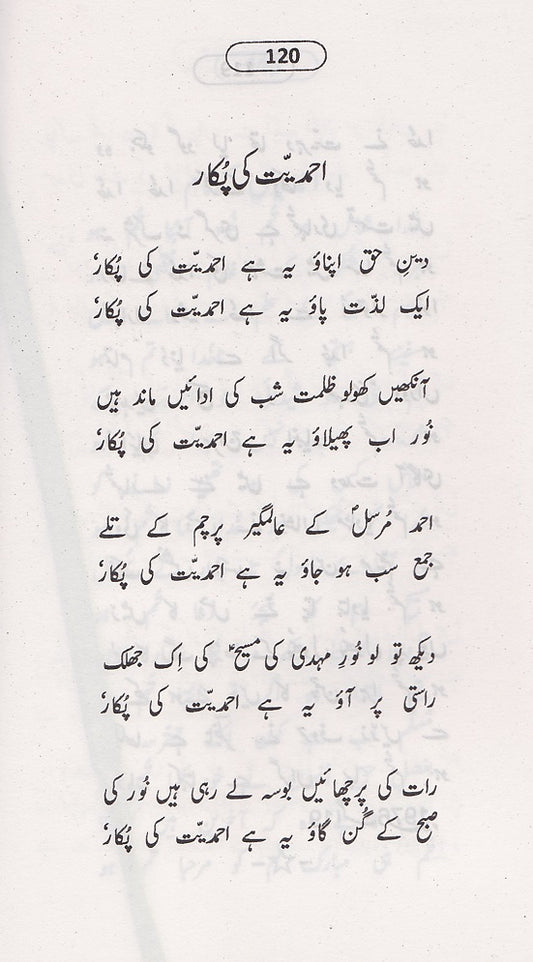 120
احمدیّت کی پُکار
دینِ حق اپناؤ یہ ہے احمدیّت کی پُکار
ایک لذّت پاؤ یہ ہے احمدیّت کی پُکار
آنکھیں کھولو ظلمت شب کی ادائیں ماند ہیں
نُور اب پھیلاؤ یہ ہے احمدیّت کی پُکار
احمد مُرسلؐ کے عالمگیر پرچم کے تلے
جمع سب ہو جاؤ یہ ہے احمدیّت کی پُکار
دیکھ تو لو نُورِ مہدی کی مسیحؑ کی اِک جھلک
راستی پر آؤ یہ ہے احمدیّت کی پُکار
رات کی پرچھائیں بوسہ لے رہی ہیں نُور کی
صبح کے گُن گاؤ یہ ہے احمدیّت کی پُکار